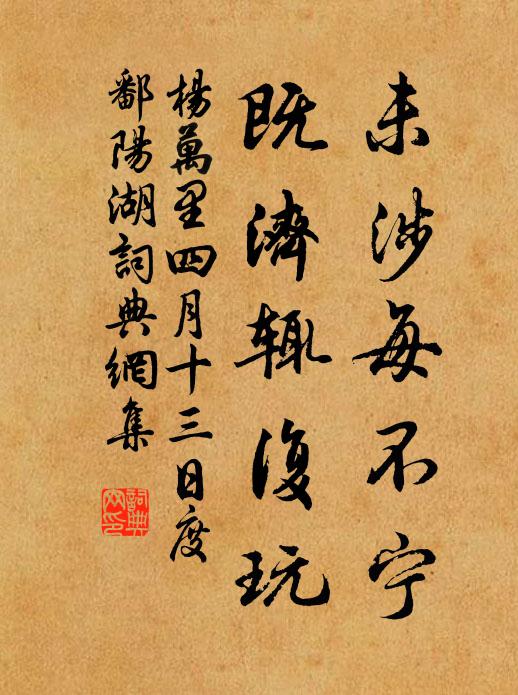 未涉每不宁
既濟辄復玩
楊萬里四月十三日度
鄱陽湖詞典網集
詞典
网印